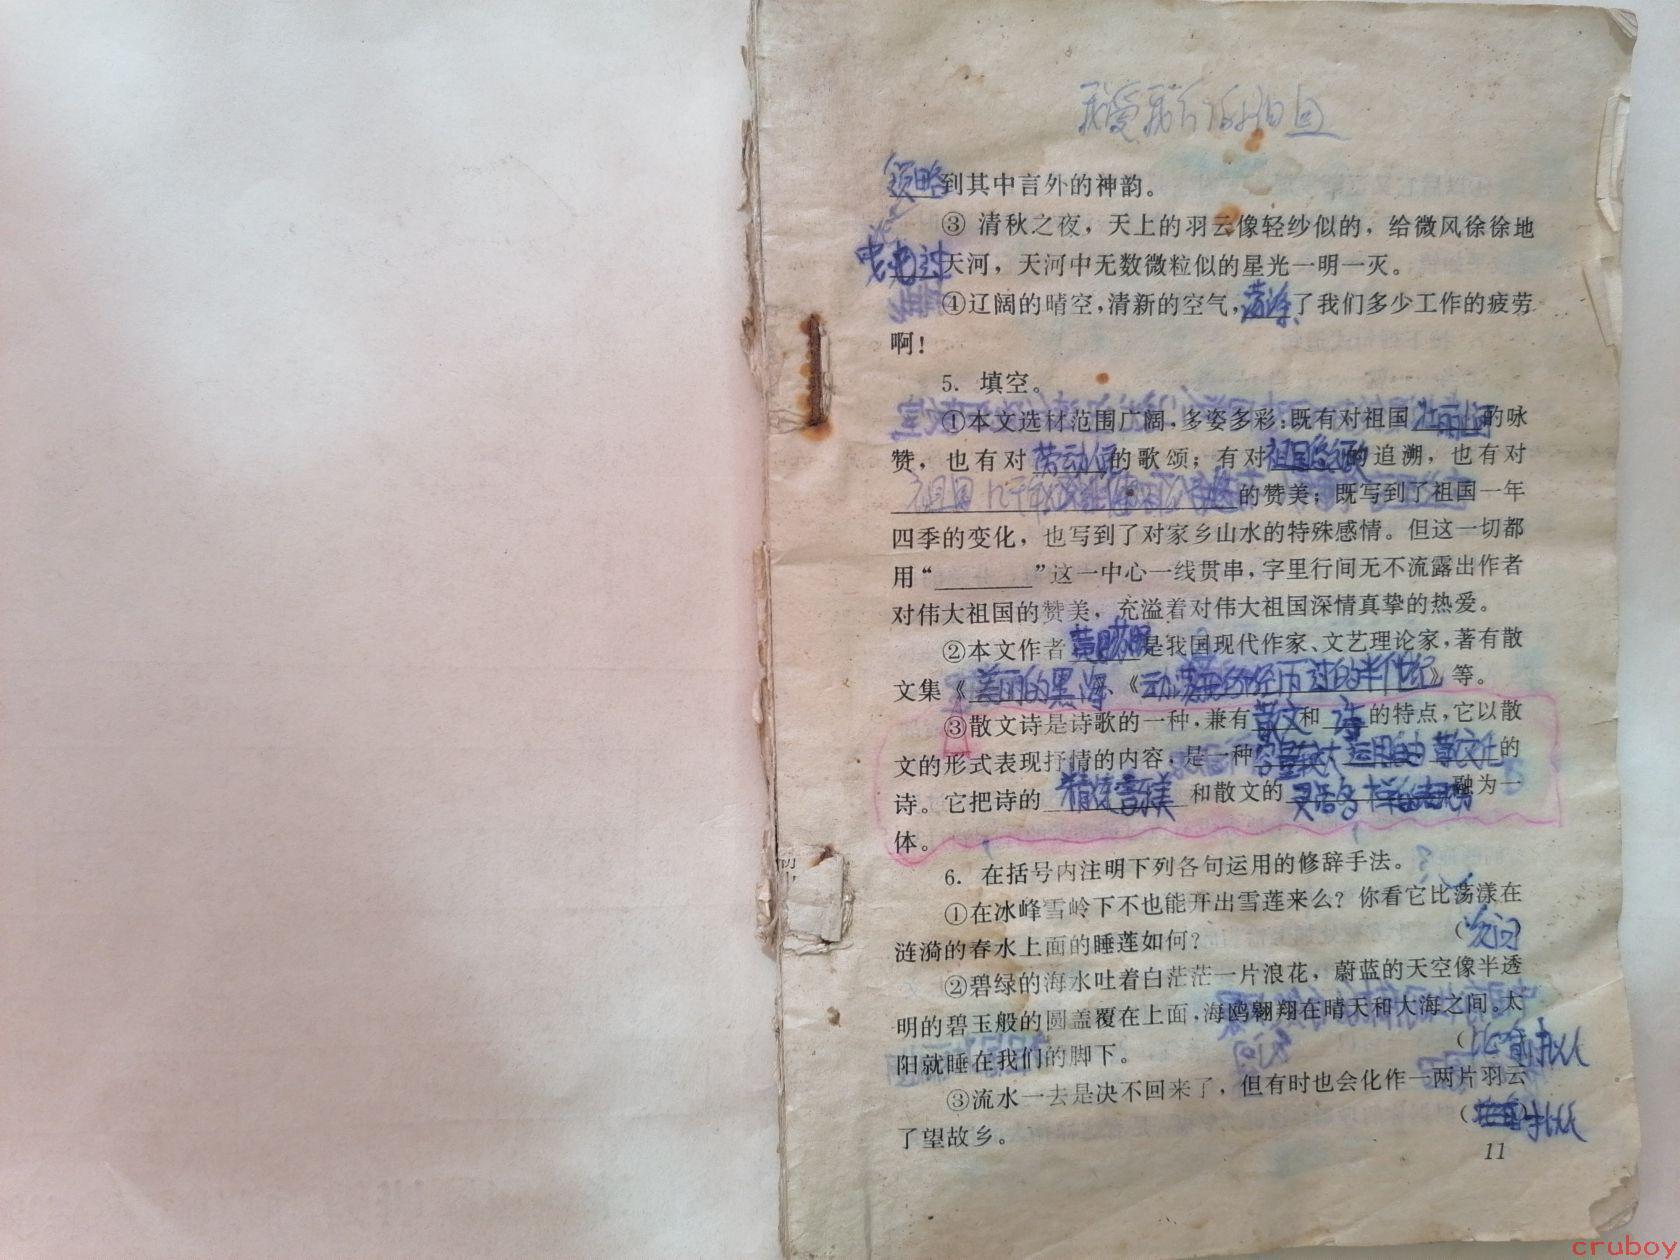 我爱我们的祖国
领略到其中言外的神韵。
③ 清秋之夜，天上的羽云像轻纱似的，给微风徐徐地
过天河，天河中无数微粒似的星光一明一灭。
④辽阔的晴空，清新的空气，荡涤了我们多少工作的疲劳
啊！
5. 填空。
①本文选材范围广阔，多姿多彩：既有对祖国 的咏
赞，也有对劳动 的歌颂；有对祖国 的追溯，也有对
祖国几千年 的赞美；既写到了祖国一年
四季的变化，也写到了对家乡山水的特殊感情。但这一切都
用“________”这一中心一线贯串，字里行间无不流露出作者
对伟大祖国的赞美，充溢着对伟大祖国深情真挚的热爱。
②本文作者黄 是我国现代作家、文艺理论家，著有散
文集《美丽的黑海》、《动荡 的半世纪》等。
③散文诗是诗歌的一种，兼有散文和诗的特点，它以散
文的形式表现抒情的内容，是一种容量较大运用自由散文化的
诗。它把诗的精炼音乐美和散文的灵活多样的表现力融为一
体。
6. 在括号内注明下列各句运用的修辞手法。
①在冰峰雪岭下不也能开出雪莲来么？你看它比荡漾在
涟漪的春水上面的睡莲如何？ （反问）
②碧绿的海水吐着白茫茫一片浪花，蔚蓝的天空像半透
明的碧玉般的圆盖覆在上面，海鸥翱翔在晴天和大海之间。太
阳就睡在我们的脚下。 （比喻拟人
③流水一去是决不回来了，但有时也会化作一两片羽云
了望故乡。 （ 拟人
11
cruboy